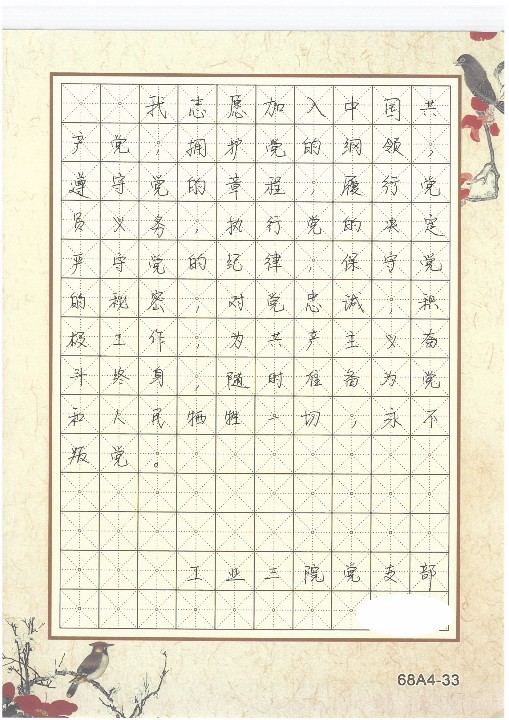 我志愿加入中国共
产党，拥护党的纲领，
遵守党的章程，履行党
员义务，执行党的决定
严守党的纪律，保守党
的秘密，对党忠诚，积
极工作，为共产主义奋
斗终身，随时准备为党
和人民牺牲一切，永不
叛党。
工业三院党支部
68A4-33